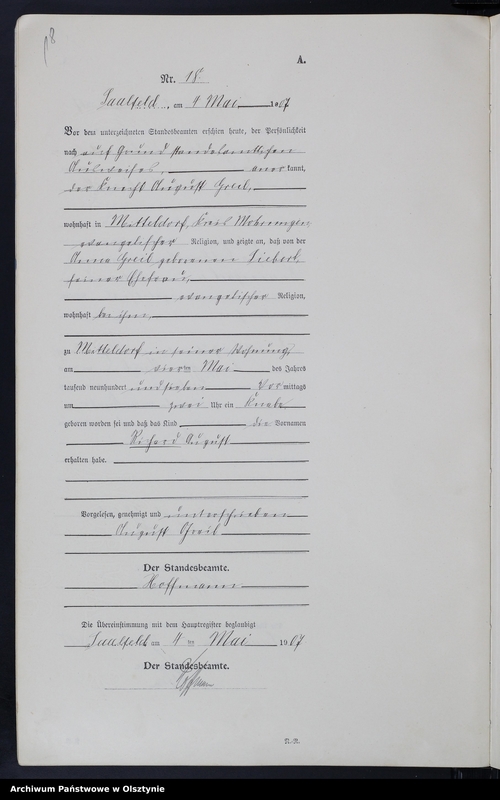 A.
Nr. 18
Saalfeld, am 4 Mai 1907
Vor dem unterzeichneten Standesbeamten erschien heute, der Persönlichkeit
nach auf Grund standesamtlichen
Ausweises, anerkannt,
der Knecht August Greil,
wohnhaft in Mitteldorf, Kreis Mohrungen
evangelischer Religion, und zeigte an, daß von der
Anna Greil geborenen Liebert,
seiner Ehefrau,
evangelischer Religion,
wohnhaft bei ihm,
zu Mitteldorf in seiner Wohnung,
am vier ten Mai des Jahres
tausend neunhundert und sieben Vor mittags
um zwei Uhr ein Knabe
geboren worden sei und daß das Kind die Vornamen
Richard August
erhalten habe.
Vorgelesen, genehmigt und unterschrieben
August Greil
Der Standesbeamte.
Hoffmann
Die Übereinstimmung mit dem Hauptregister beglaubigt
Saalfeld am 4 ten Mai 1907
Der Standesbeamte.
Hoffmann
Archiwum Państwowe w Olsztynie